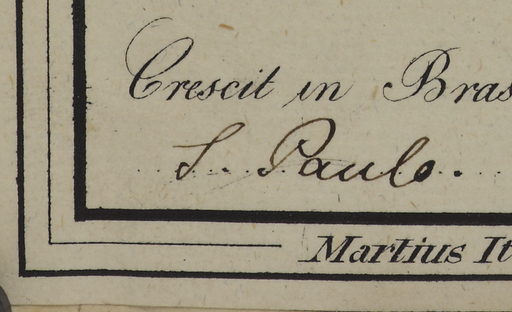 Crescit in Bras
S. Paulo.
Martius It